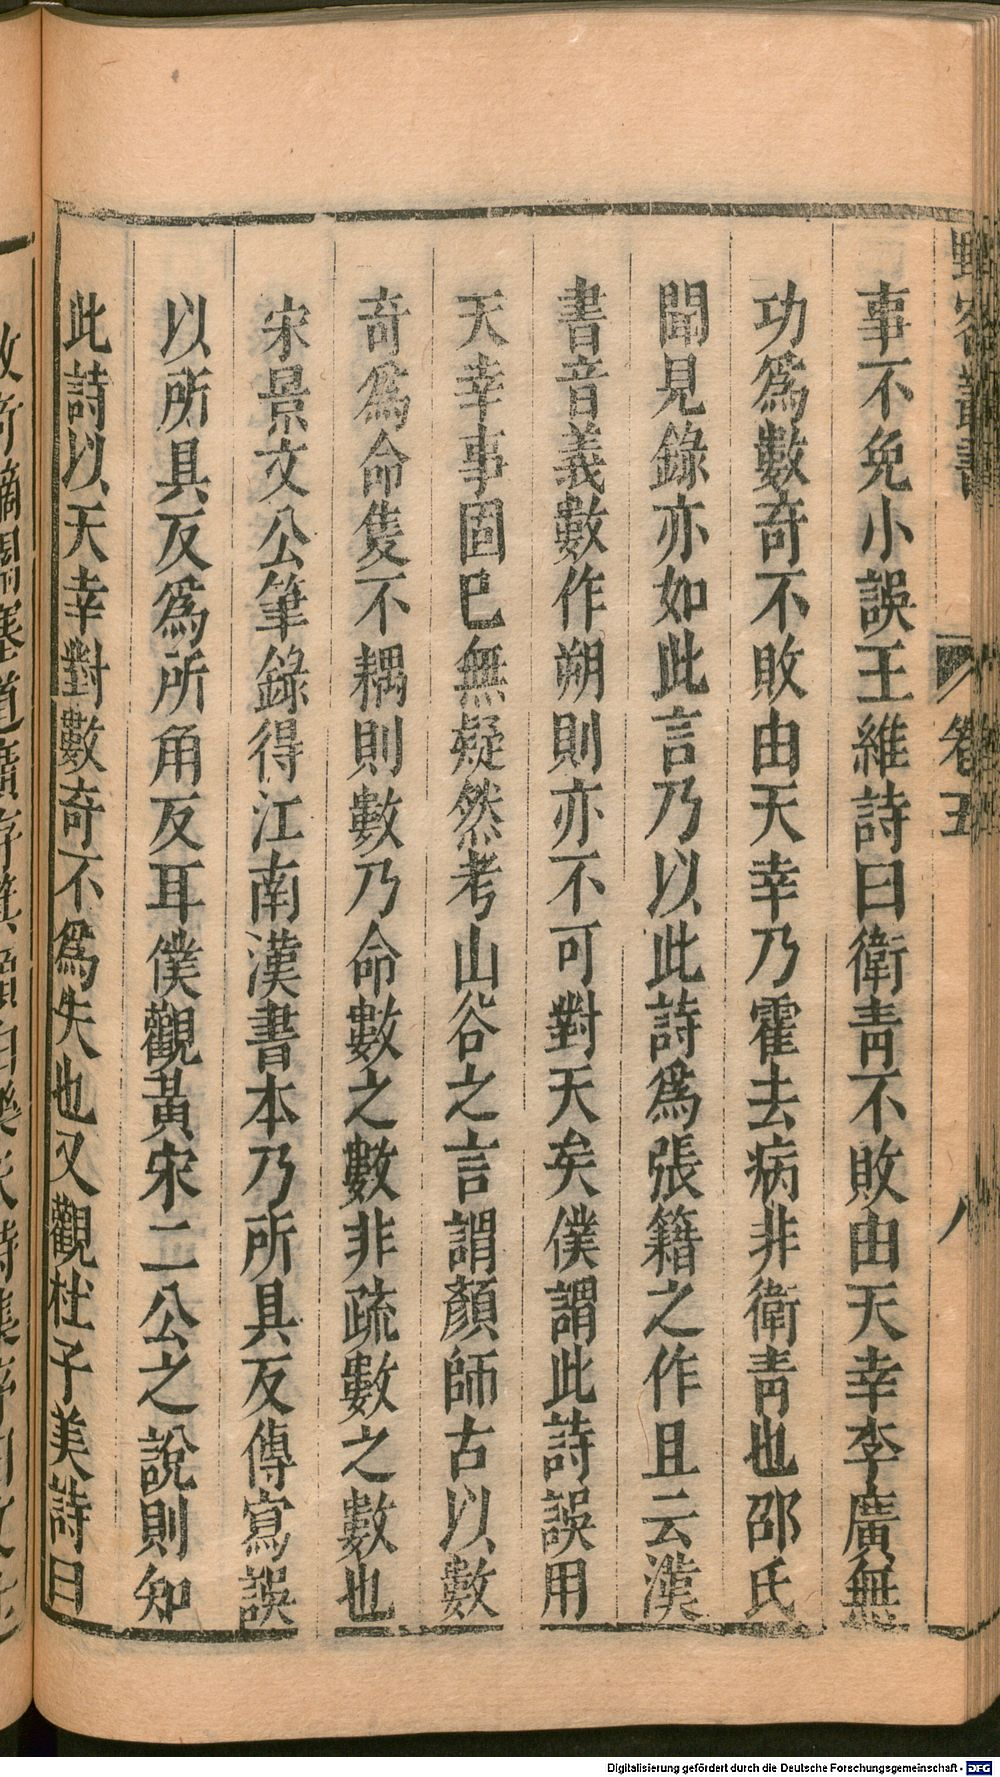 野客叢書
卷五
八
事不免小誤王維詩曰衛青不敗由天幸李廣無
功爲數奇不敗由天幸乃霍去病非衛青也邵氏
聞見錄亦如此言乃以此詩爲張籍之作且云漢
書音義數作朔則亦不可對天矣僕謂此詩誤用
天幸事固已無疑然考山谷之言謂顏師古以數
奇爲命隻不耦則數乃命數之數非疏數之數也
宋景文公筆錄得江南漢書本乃所具反傳寫誤
以所具反爲所角反耳僕觀黃宋二公之說則知
此詩以天幸對數奇不爲失也又觀杜子美詩曰
Digitalisierung gefördert durch die Deutsche Forschungsgemeinschaft - DFG